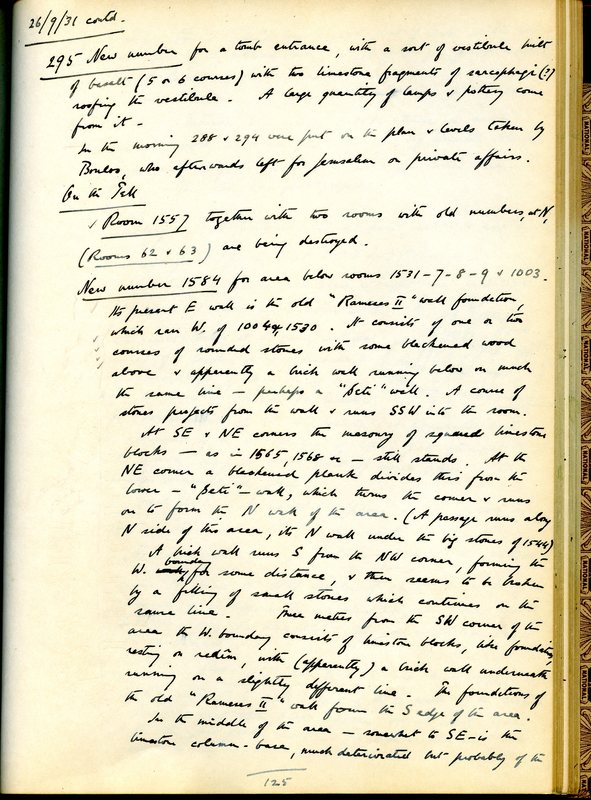 26/9/31 contd.
295 New number for a tomb entrance, with a sort of vestibule built
of basalt (5 or 6 courses) with two limestone fragments of sarcophagi (?)
roofing the vestibule. A large quantity of lamps & pottery come
from it -
In the morning 288 & 294 were put on the plan & levels taken by
Boulos, who afterwards left for Jerusalem on private affairs.
On the Tell
✓ Room 1557 together with two rooms with old numbers, at N,
(Rooms 62 & 63) are being destroyed.
New number 1584 for area below rooms 1531-7-8-9 & 1003.
Its present E wall is the old "Rameses II" wall foundation,
which ran W. of 1004 & 1530. It consists of one or two
courses of rounded stones with some blackened wood
above & apparently a brick wall running below on much
the same line - perhaps a "Seti" wall. A course of
stones projects from the wall & runs SSW into the room.
At SE & NE corners the masonry of squared limestone
blocks - as in 1565, 1568 - still stands. At the
NE corner a blackened plank divides this from the
lower - "Seti" - wall, which turns the corner & runs
on to form the N wall of the area. (A passage runs along
N side of this area, its N wall under the big stones of 1544)
A brick wall runs S from the NW corner, forming the
W. boundary for some distance, & then seems to be broken
by a filling of small stones which continues on the
same line. Three metres from the SW corner of the
area the W. boundary consists of limestone blocks, like foundations,
resting on redîm, with (apparently) a brick wall underneath
running on a slightly different line. The foundations of
the old "Rameses II" wall form the S edge of the area.
In the middle of the area - somewhat to SE - is the
limestone column-base, much deteriorated but probably of the
125
NATIONAL